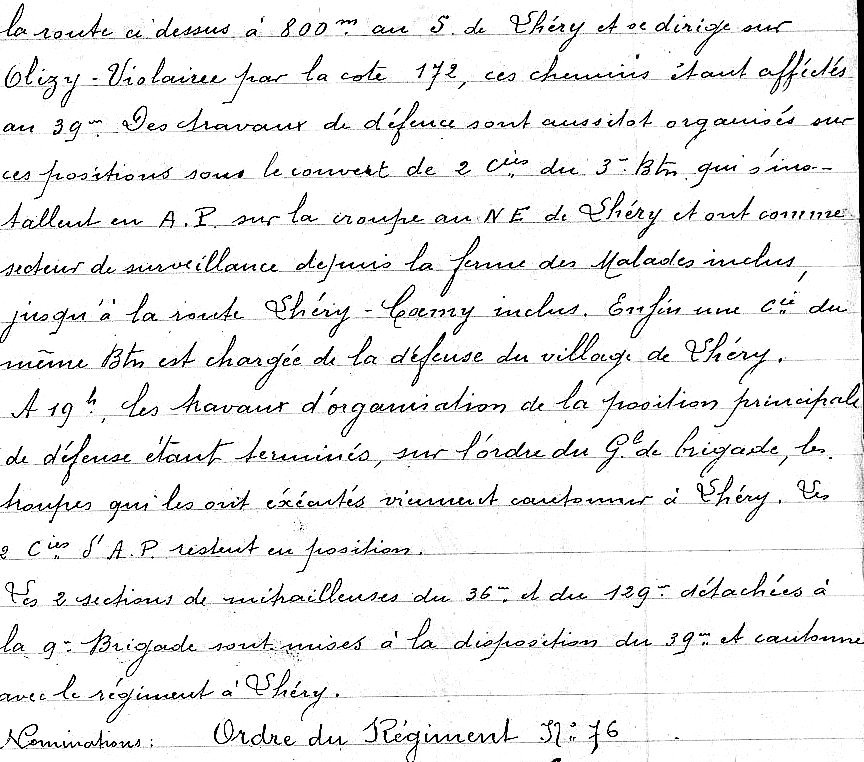 la route ci dessus à 800m au S. de Lhéry et se dirige sur
Olizy-Violaire par la cote 172, ces chemins étant affectés
au 39me Des travaux de défence sont aussitot organisés sur
ces positions sous le couvert de 2 Cies du 3me Btn qui s'ins-
tallent en A.P. sur la croupe au NE de Lhéry et ont comme
secteur de surveillance depuis la ferme des Malades inclus,
jusqu'à la route Lhéry-Coemy inclus. Enfin une Cie du
même Btn est chargée de la défense du village de Lhéry.
A 19h, les travaux d'organisation de la position principale
de défense étant terminés, sur l'ordre du Gal de brigade, les
troupes qui les ont éxécutés viennent cantonner à Lhéry. Les
2 Cies d'A.P. restent en position.
Les 2 sections de mitrailleuses du 36me et du 129me détachées à
la 9me Brigade sont mises à la disposition du 39me et cantonne
avec le régiment à Lhéry.
Nominations: Ordre du Régiment No 76